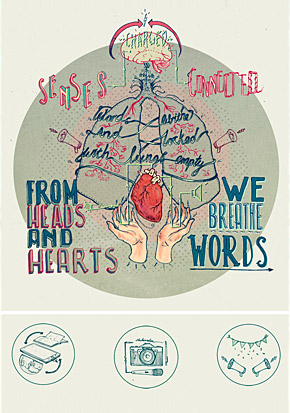 CHARGED
SENSES
CONNECTED
hands
and
with
locked
lungs empty
FROM
HEADS
AND
HEARTS
WE
BREATHE
WORDS